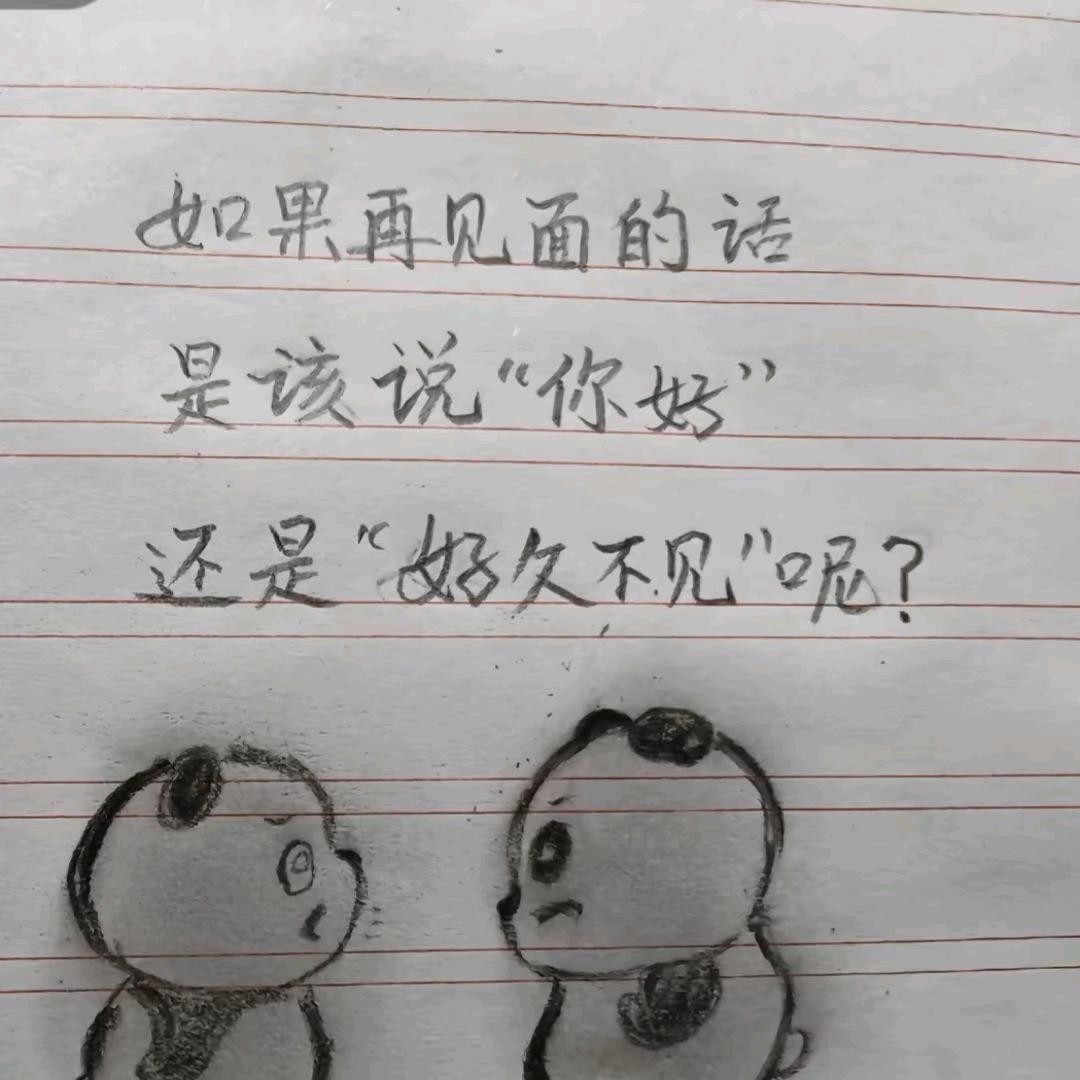 如果再见面的话
是该说“你好”
还是“好久不见”呢？